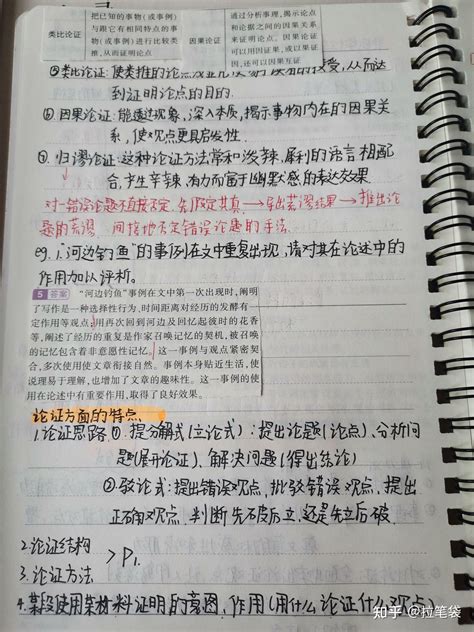 类比论证
把已知的事物(或事例)
与跟它有相同特点的事
物(或事例)进行比较类
推,从而证明论点
因果论证
通过分析事理,揭示论点
和论据之间的因果关系
来证明论点。因果论证
可以用因证果,或以果证
因,还可以因果互证
⑤类比论证:使类推的论点 受,从而达
到证明论点的目的.
⑥因果论证:能透过现象,深入本质,揭示事物内在的因果关
系,使观点更具启发性.
⑦归谬论证:这种论证方法常和泼辣,犀利的语言相配
合,产生辛辣,有力而富于幽默感的表达效果.
对一错误论题不直接否定,先假定其真→导出荒谬结果→推出论
题的荒谬,间接地否定错误论题的手法.
eg.1."河边钓鱼"的事例在文中重复出现,请对其在论述中的
作用加以评析。
5 答案 “河边钓鱼”事例在文中第一次出现时,阐明
了写作是一种选择性行为,时间距离对经历的发酵有一
定作用等观点;用再次回到河边及回忆起彼时的花香
等,阐述了经历的重复是作家召唤记忆的契机,被召唤
的记忆包含着非意愿性记忆。这一事例与观点紧密契
合,多次使用使文章衔接自然。事例本身贴近生活,使
说理易于理解,也增加了文章的趣味性。这一事例的使
用在论述中有重要作用,取得了良好效果。
论证方面的特点.
1.论证思路.①提分解式(立论式):提出论题(论点)、分析问
题(展开论证)、解决问题(得出结论)
②驳论式:提出错误观点,批驳错误观点,提出
正确观点,判断先破后立,还是先立后破.
2.论证结构
> P1.
3.论证方法
4.某段使用某材料证明的意图、作用(用什么论证什么观点)
知乎 @拉笔袋